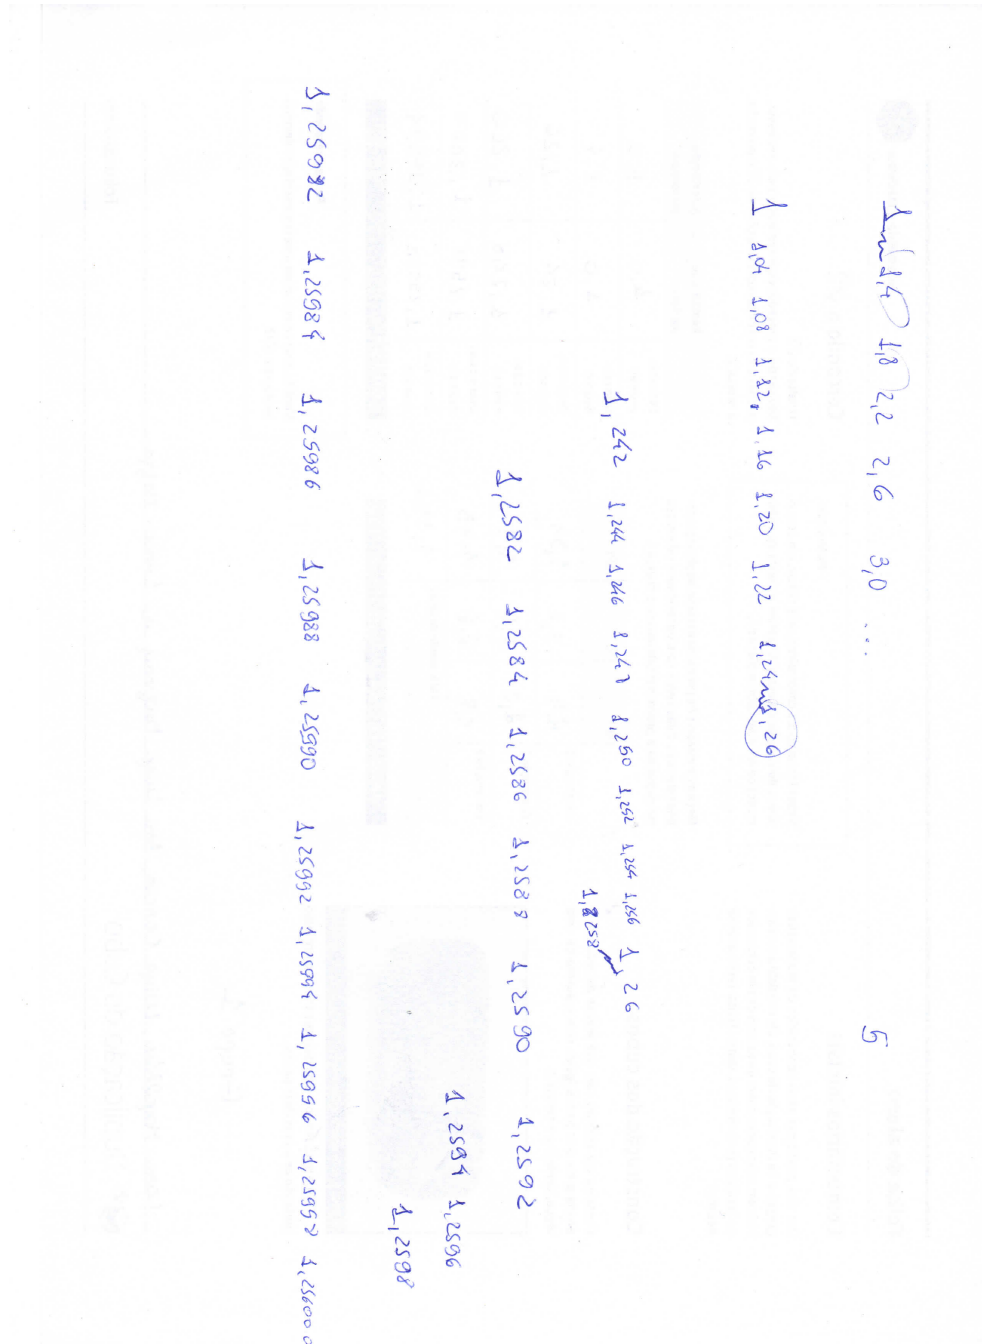 1 1,4 1,8 2,2 2,6 3,0 ... 5
1 1,04 1,08 1,12, 1,16 1,20 1,22 1,24 1,26
1,242 1,244 1,246 1,248 1,250 1,252 1,254 1,256 1,26
1,258
1,2582 1,2584 1,2586 1,2588 1,2590 1,2592
1,2594 1,2596
1,2598
1,25982 1,25984 1,25986 1,25988 1,25990 1,25992 1,25994 1,25996 1,25998 1,26000